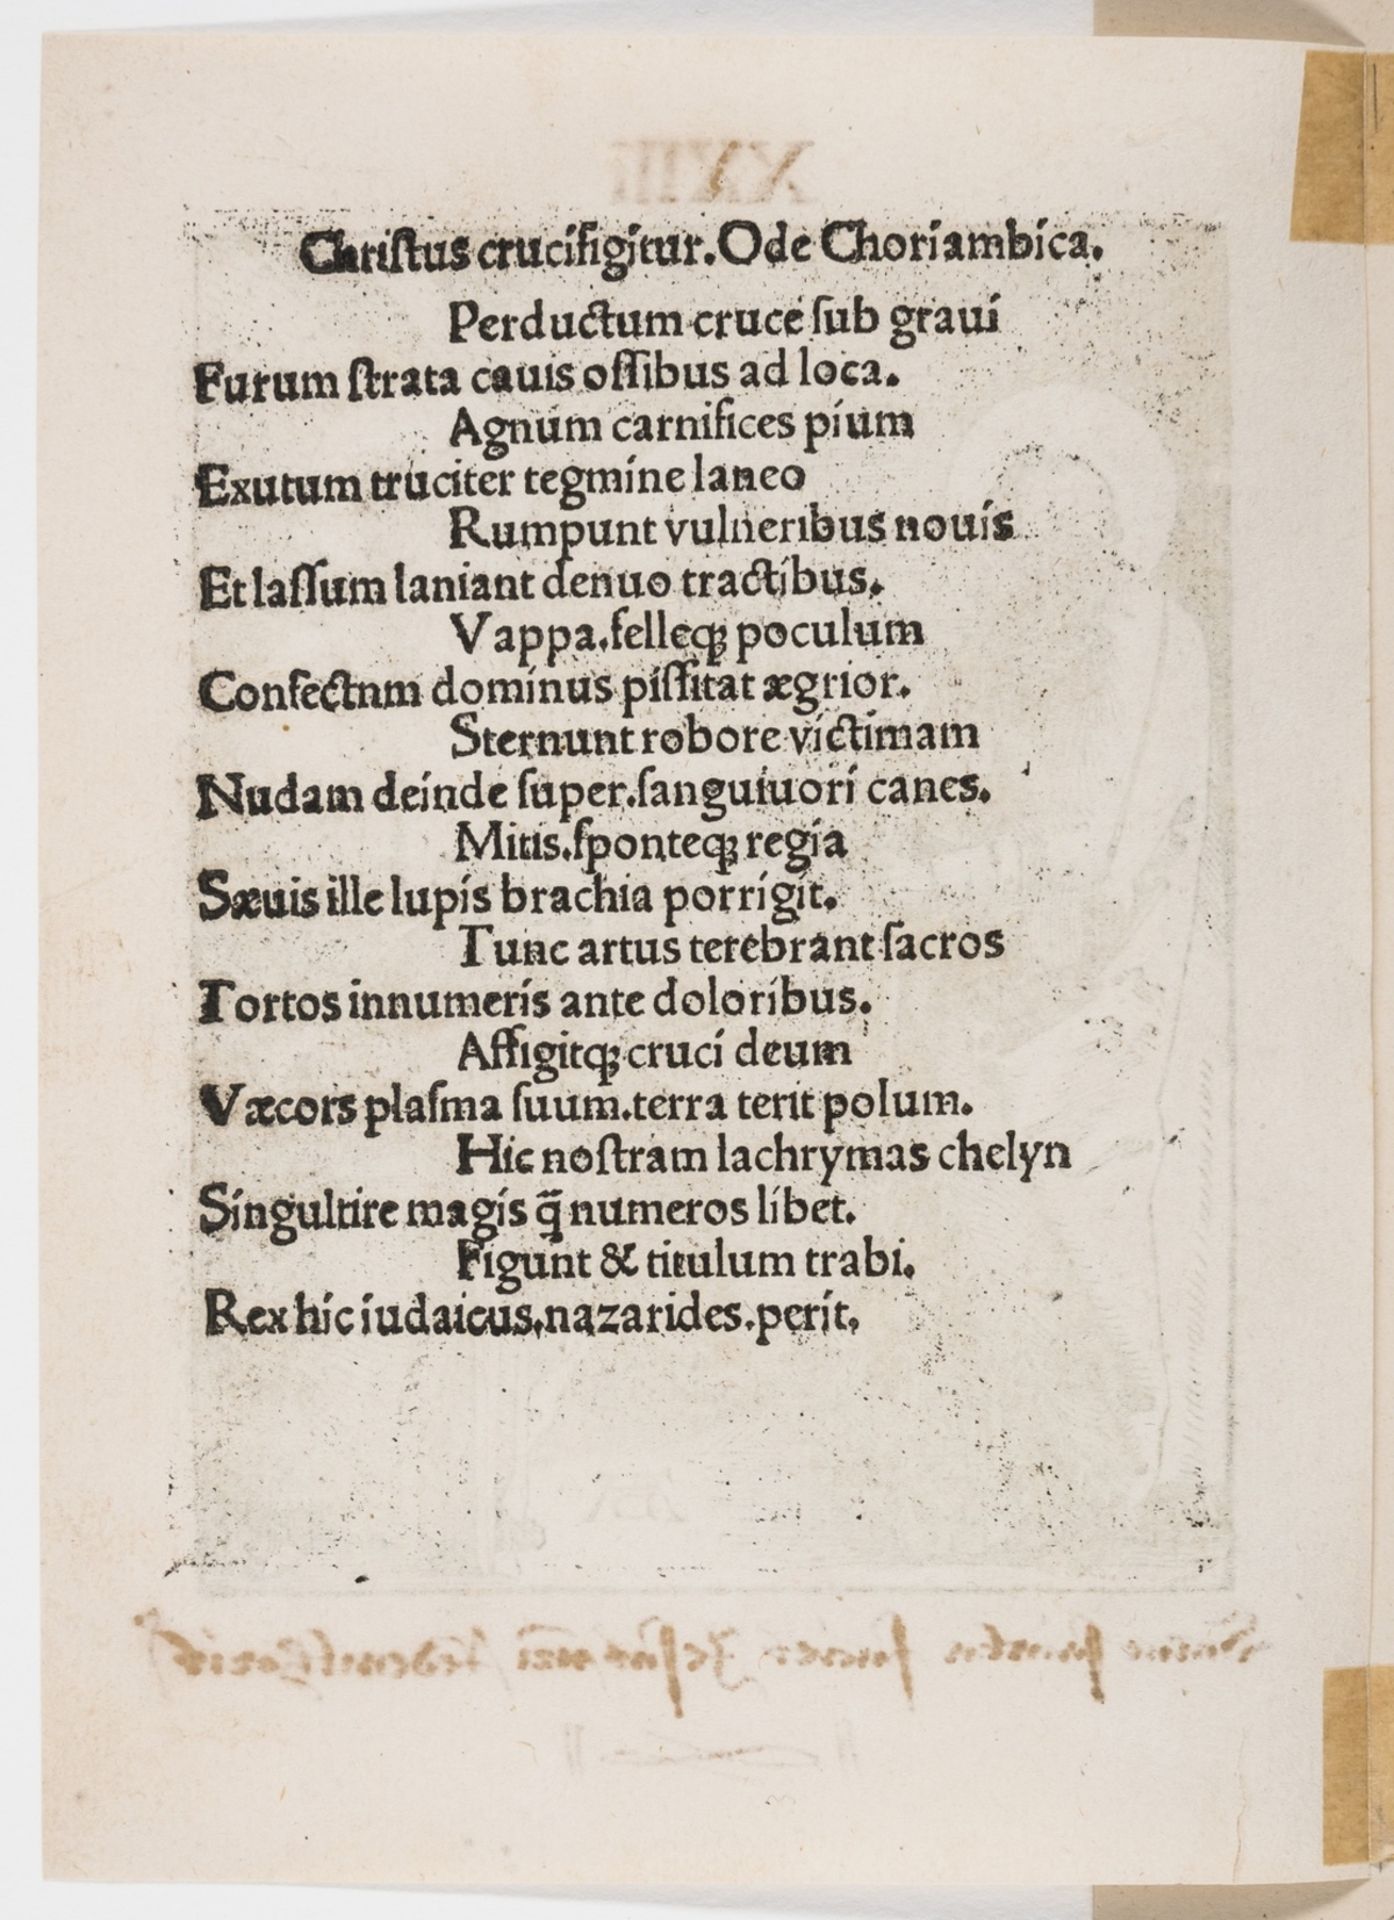 Chriſtus crucifigitur. Ode Choriambica.
Perductum cruce ſub graui
Furum ſtrata cauis oſſibus ad loca.
Agnum carnifices pium
Exutum truciter tegmine laneo
Rumpunt vulneribus nouis
Et laſſum laniant denuo tractibus.
Vappa. felleqꝫ poculum
Confectnm dominus piſſitat ægrior.
Sternunt robore victimam
Nudam deinde ſuper. ſanguiuori canes.
Mitis. ſponteqꝫ regia
Sæuis ille lupis brachia porrigit.
Tunc artus terebrant ſacros
Tortos innumeris ante doloribus.
Affigitqꝫ cruci deum
Væcors plaſma suum. terra terit polum.
Hic noſtram lachrymas chelyn
Singultire magis q̃ numeros libet.
Figunt & titulum trabi.
Rex hic iudaicus. nazarides. perit.